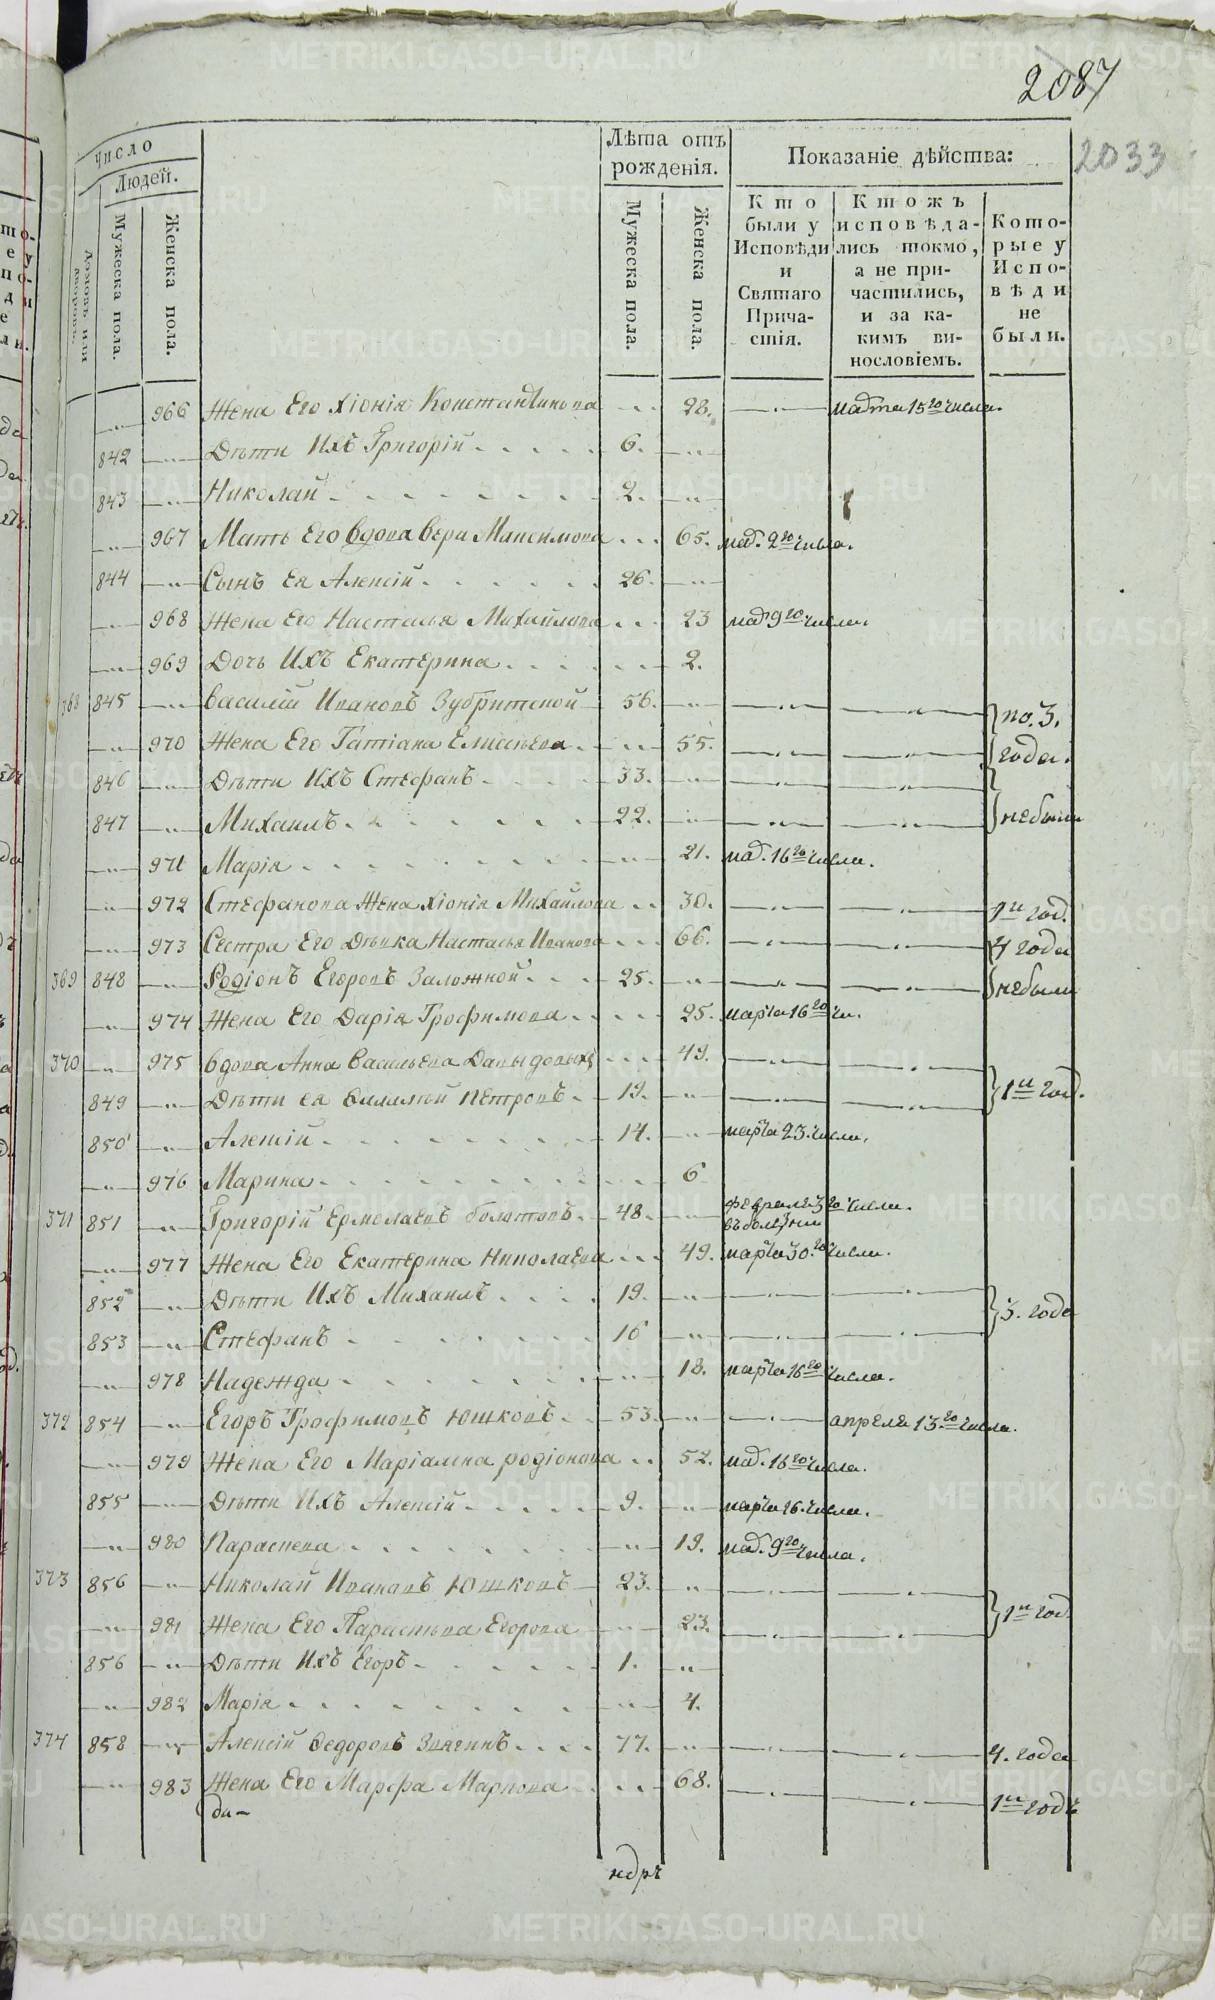 2087
2033
Число
Людей.
Дворовъ или
Мужеска пола.
Женска пола.
Лѣта отъ рожденія.
Мужеска пола.
Женска пола.
Показаніе дѣйства:
Кто были у Исповѣди и Святаго Причастія.
Ктожъ исповѣдались токмо, а не причастились, и за какимъ винословіемъ.
Которые у Исповѣди не были.
966 Жена Его Хіонія Константинова 28. марта 15го числа.
842 Дѣти Ихъ Григорій 6.
843 Николай 2.
967 Мать Его вдова Вера Максимова 65. 2го числа.
844 Сынъ Ея Алексій 26.
968 Жена Его Настасья Михайлова 23 9го числа.
969 Дочь Ихъ Екатерина 2.
368 845 Василій Ивановъ Зубритской 56. по. 3.
970 Жена Его Татіана Елисѣева 55. года.
846 Дѣти Ихъ Стефанъ 33.
847 Михаилъ 22. небыли
971 Марія 21. 16го числа.
972 Стефанова Жена Хіонія Михайлова 30. 1й год.
973 Сестра Его Дѣвка Настасья Иванова 66. 4 года
369 848 Родіонъ Егоровъ Заложной 25. небыли
974 Жена Его Дарія Трофимова 25. марта 16го чи.
370 975 Вдова Анна Васильева Давыдовыхъ 49.
849 Дѣти ея Филипъ Петровъ 19. 1й год.
850 Алексій 14. марта 23. числа.
976 Марина 6
371 851 Григорій Ермолаевъ Болотовъ 48. февраля 3го числа.
въ болѣзни
977 Жена Его Екатерина Николаева 49. марта 30.го числа.
852 Дѣти Ихъ Михаилъ 19. 3. года
853 Стефанъ 16
978 Надежда 18. марта 16го числа.
372 854 Егоръ Трофимовъ Юшковъ 53. апреля 13.го числа.
979 Жена Его Маріамна родіонова 52. 16го числа.
855 Дѣти Ихъ Алексій 9. марта 26. числа.
980 Параскева 19. 9го числа.
373 856 Николай Ивановъ Юшковъ 23.
981 Жена Его Параскѣва Егорова 23. 1й год.
856 Дѣти Ихъ Егоръ 1.
982 Марія 4.
374 858 Алексій Федоровъ Звягинъ 77. 4. года
983 Жена Его Марфа Маркова 68. 1й годъ
ди-
ндръ
METRIKI.GASO-URAL.RU